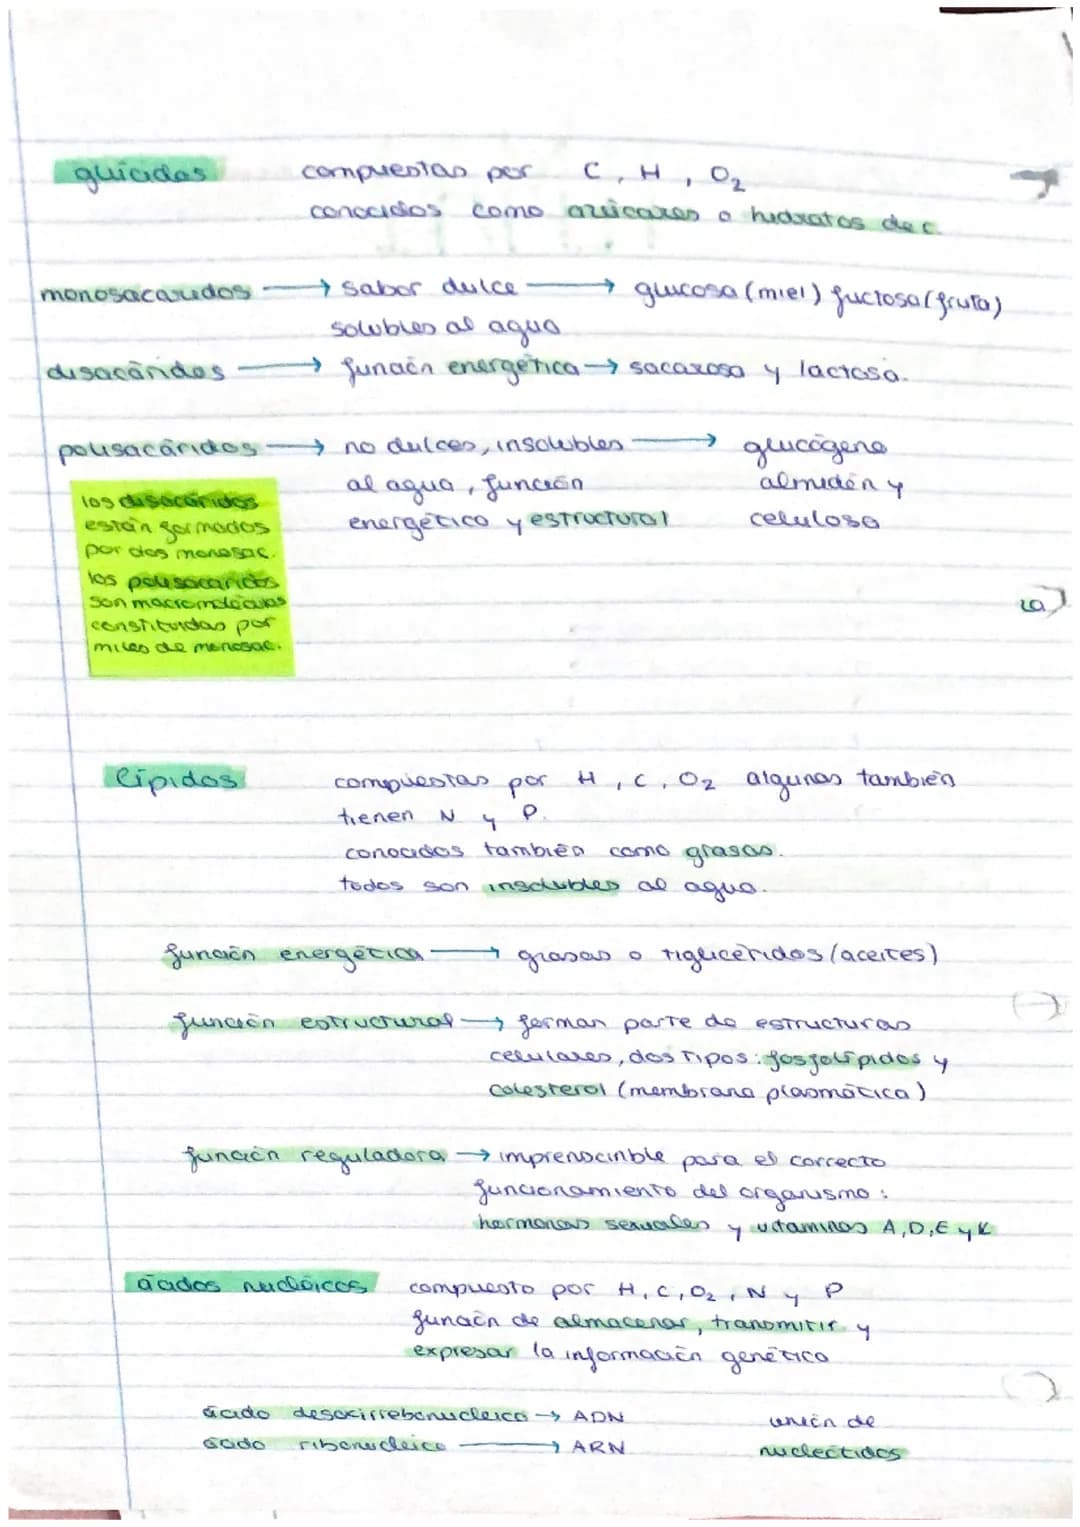 glúcidos compuestas por C, H, O2
conocidos como azúcares o hidratos de c.
monosacáridos → sabor dulce → glucosa (miel) fuctosa (fruta)
solubles al agua
disacáridos → función energética → sacarosa y lactosa.
polisacáridos → no dulces, insolubles → glucógeno
al agua, función almidón y
energético y estructural celulosa
los disacáridos
están formados
por dos monosac.
los polisacáridos
son macromoléculas
constituidas por
miles de monosac.
lípidos compuestas por H, C, O2 algunas también
tienen N y P.
conocidos también como grasas.
todos son insolubles al agua.
función energética → grasas o tiglicéridos (aceites)
función estructural → forman parte de estructuras
celulares, dos tipos: fosfolípidos y
colesterol (membrana plasmática)
función reguladora → imprenscinble para el correcto
funcionamiento del organismo:
hormonas sexuales y vitaminas A, D, E y K
ácidos nucléicos compuesto por H, C, O2, N y P
función de almacenar, transmitir y
expresar la información genética
ácido desoxirrebonucleico → ADN unión de
ácido ribonucleico → ARN nucleótidos